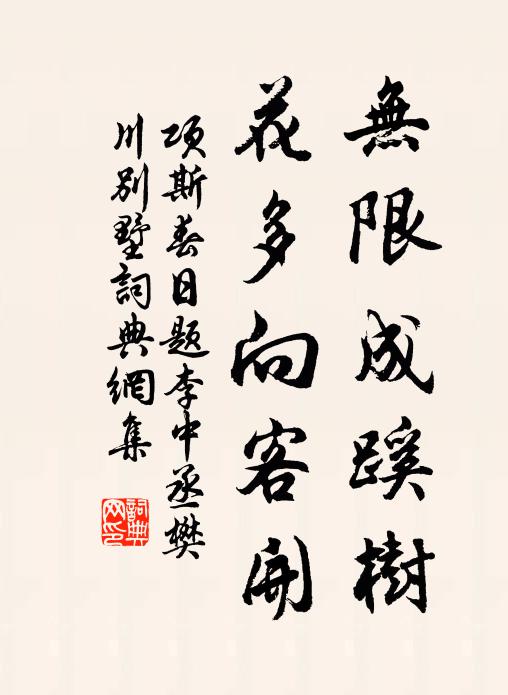 無限成蹊樹
花多向客開
項斯春日題李中丞樊
川別墅詞典網集
詞典
网印